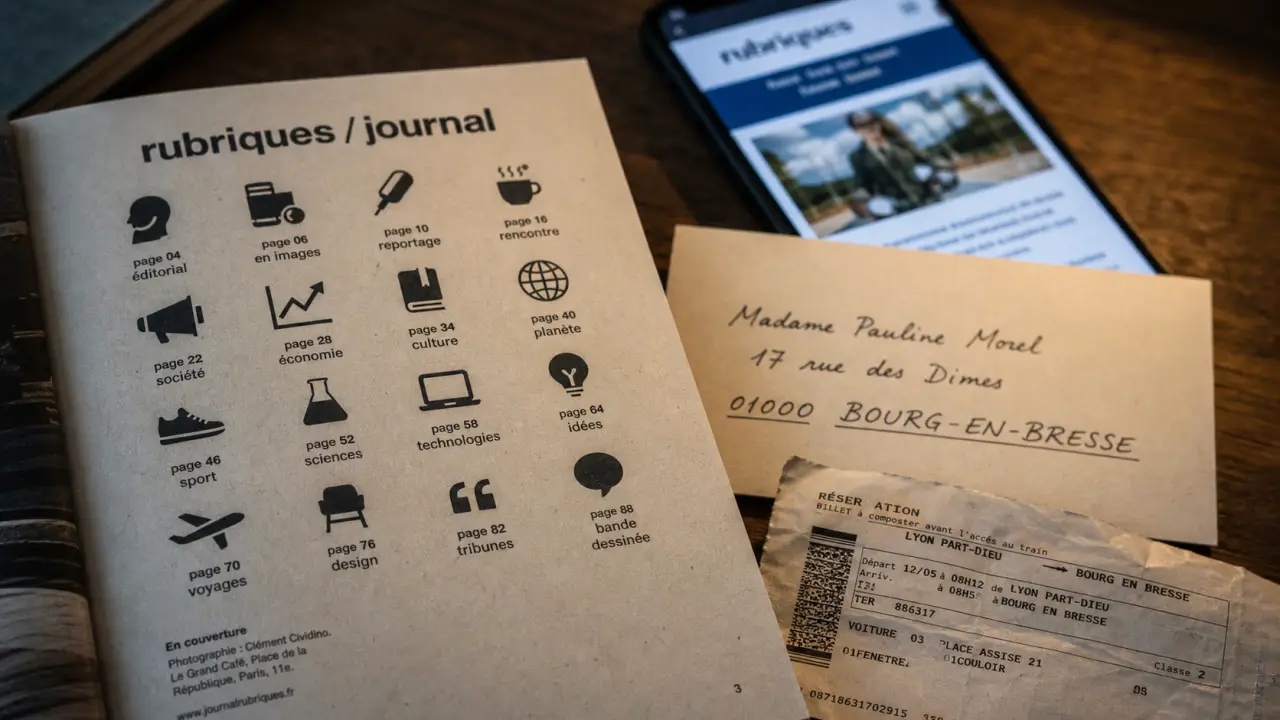 rubriques / journal
page 04
éditorial
page 06
en images
page 10
reportage
page 16
rencontre
page 22
société
page 28
économie
page 34
culture
page 40
planète
page 46
sport
page 52
sciences
page 58
technologies
page 64
idées
page 70
voyages
page 76
design
page 82
tribunes
page 88
bande
dessinée
En couverture
Photographie : Clément Cividino.
Le Grand Café, Place de la
République, Paris, 11e.
www.journalrubriques.fr
3
rubriques
Madame Pauline Morel
17 rue des Dimes
01000 BOURG-EN-BRESSE
RÉSER ATION
BILLET à composter avant l'accés au train
LYON PART-DIEU → BOURG EN BRESSE
Départ 12/05 à 08H12 de LYON PART-DIEU
Arriv. à 08H5 à BOURG EN BRESSE
TER 886317
VOITURE 03 PLACE ASSISE 21
Classe 2
01FENETRE 01COULOIR
08718631702915